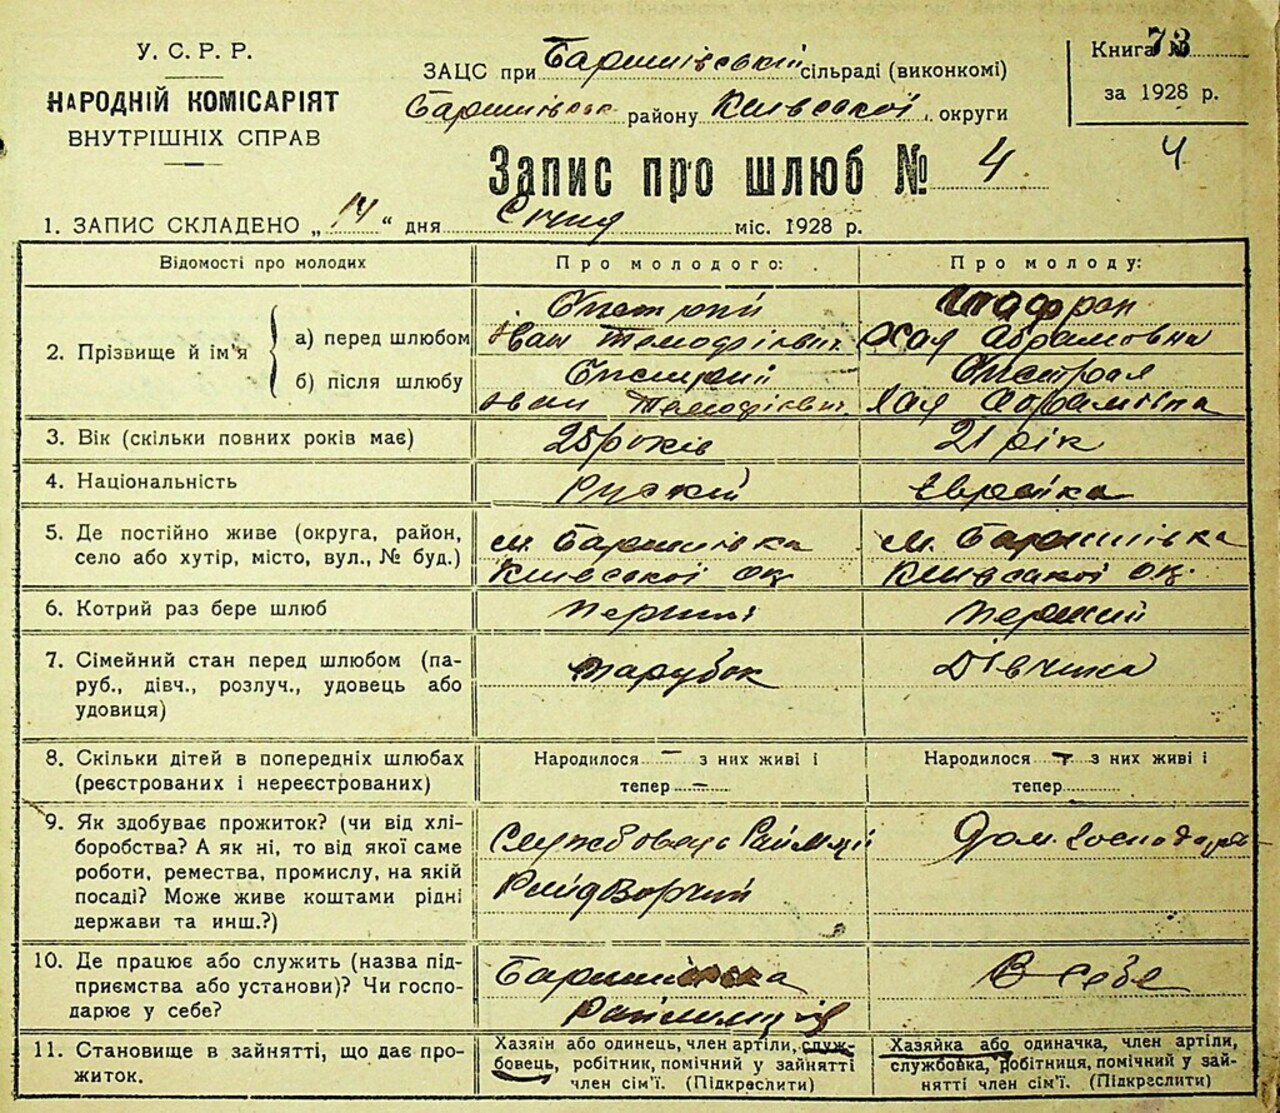 У. С. Р. Р.
НАРОДНІЙ КОМІСАРІЯТ
ВНУТРІШНІХ СПРАВ
ЗАЦС при Баришівській сільраді (виконкомі)
Баришівськ району Київської округи
Книга № 73
за 1928 р.
4
Запис про шлюб № 4
1. ЗАПИС СКЛАДЕНО „14“ дня Січня міс. 1928 р.
Відомості про молодих
Про молодого:
Про молоду:
2. Прізвище й ім'я
а) перед шлюбом
б) після шлюбу
Іван Тимофієвич
Хая Абрамовна
Быстрая
Іван Тимофієвич
Хая Абрамівна
3. Вік (скільки повних років має)
25 років
21 рік
4. Національність
Руский
Еврейка
5. Де постійно живе (округа, район,
село або хутір, місто, вул., № буд.)
м. Баришівка
Київської ок.
м. Баришівка
Київської ок.
6. Котрий раз бере шлюб
Перший
Перший
7. Сімейний стан перед шлюбом (па-
руб., дівч., розлуч., удовець або
удовиця)
парубок
Дівчина
8. Скільки дітей в попередніх шлюбах
(реєстрованих і нереєстрованих)
Народилося — з них живі і
тепер —
Народилося — з них живі і
тепер
9. Як здобуває прожиток? (чи від хлі-
боробства? А як ні, то від якої саме
роботи, ремества, промислу, на якій
посаді? Може живе коштами рідні
держави та инш.?)
Службовець Райміліції
Дом. Господарка
10. Де працює або служить (назва під-
приємства або установи)? Чи госпо-
дарює у себе?
Баришівська
Райміліція
В себе
11. Становище в зайнятті, що дає про-
житок.
Хазяїн або одинець, член артіли, служ-
бовець, робітник, помічний у зайнятті
член сім'ї. (Підкреслити)
Хазяйка або одиначка, член артіли,
службовка, робітниця, помічний у зай-
нятті член сім'ї. (Підкреслити)